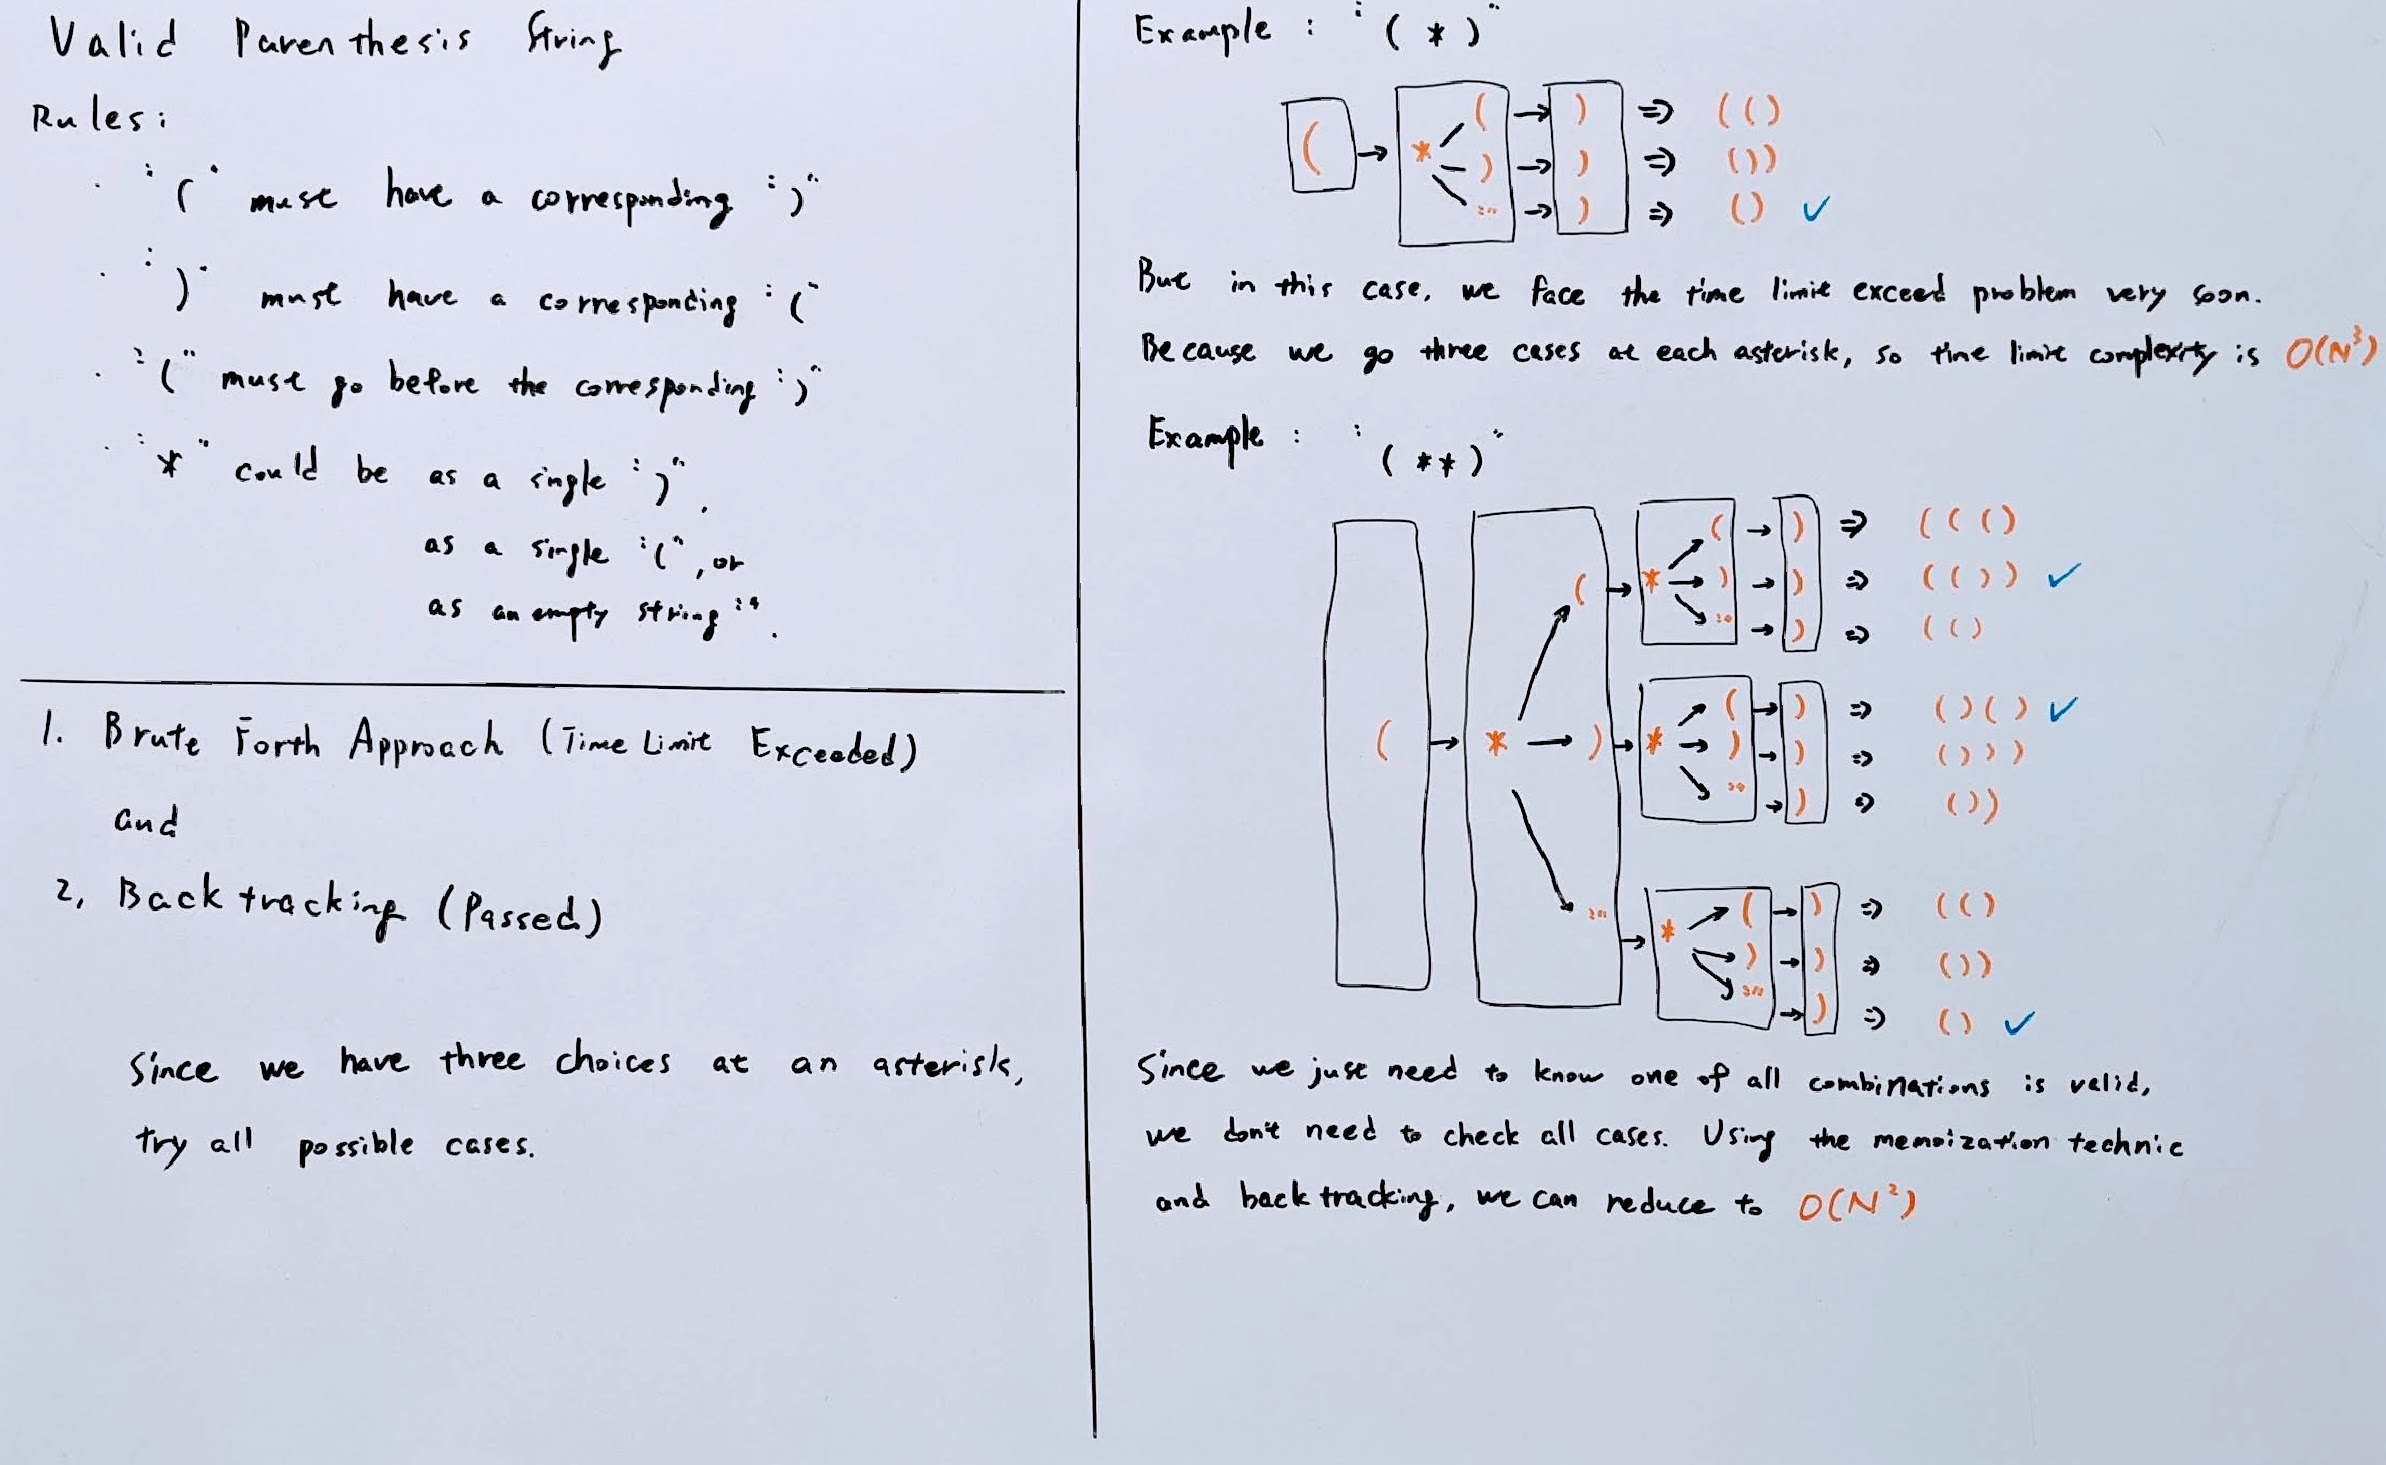 Valid Parenthesis String
Rules:
· "(" must have a corresponding ")"
· ")" must have a corresponding "("
· "(" must go before the corresponding ")"
· "*" could be as a single ")",
as a single "(", or
as an empty string "".
1. Brute Forth Approach (Time Limit Exceeded)
and
2, Backtracking (Passed)
Since we have three choices at an asterisk,
try all possible cases.
Example : "(*)"
( → * ( → ) ⇒ (()
) → ) ⇒ ())
"" → ) ⇒ () ✓
But in this case, we face the time limit exceed problem very soon.
Because we go three cases at each asterisk, so time limit complexity is O(N³)
Example : "(**)"
( → * → ( → * → ( → ) ⇒ ((()
→ ) → ) ⇒ (()) ✓
"" → ) ⇒ (()
→ ) → * → ( → ) ⇒ ()() ✓
→ ) → ) ⇒ ()))
"" → ) ⇒ ())
"" → * → ( → ) ⇒ (()
→ ) → ) ⇒ ())
"" → ) ⇒ () ✓
Since we just need to know one of all combinations is valid,
we don't need to check all cases. Using the memoization technic
and backtracking, we can reduce to O(N²)